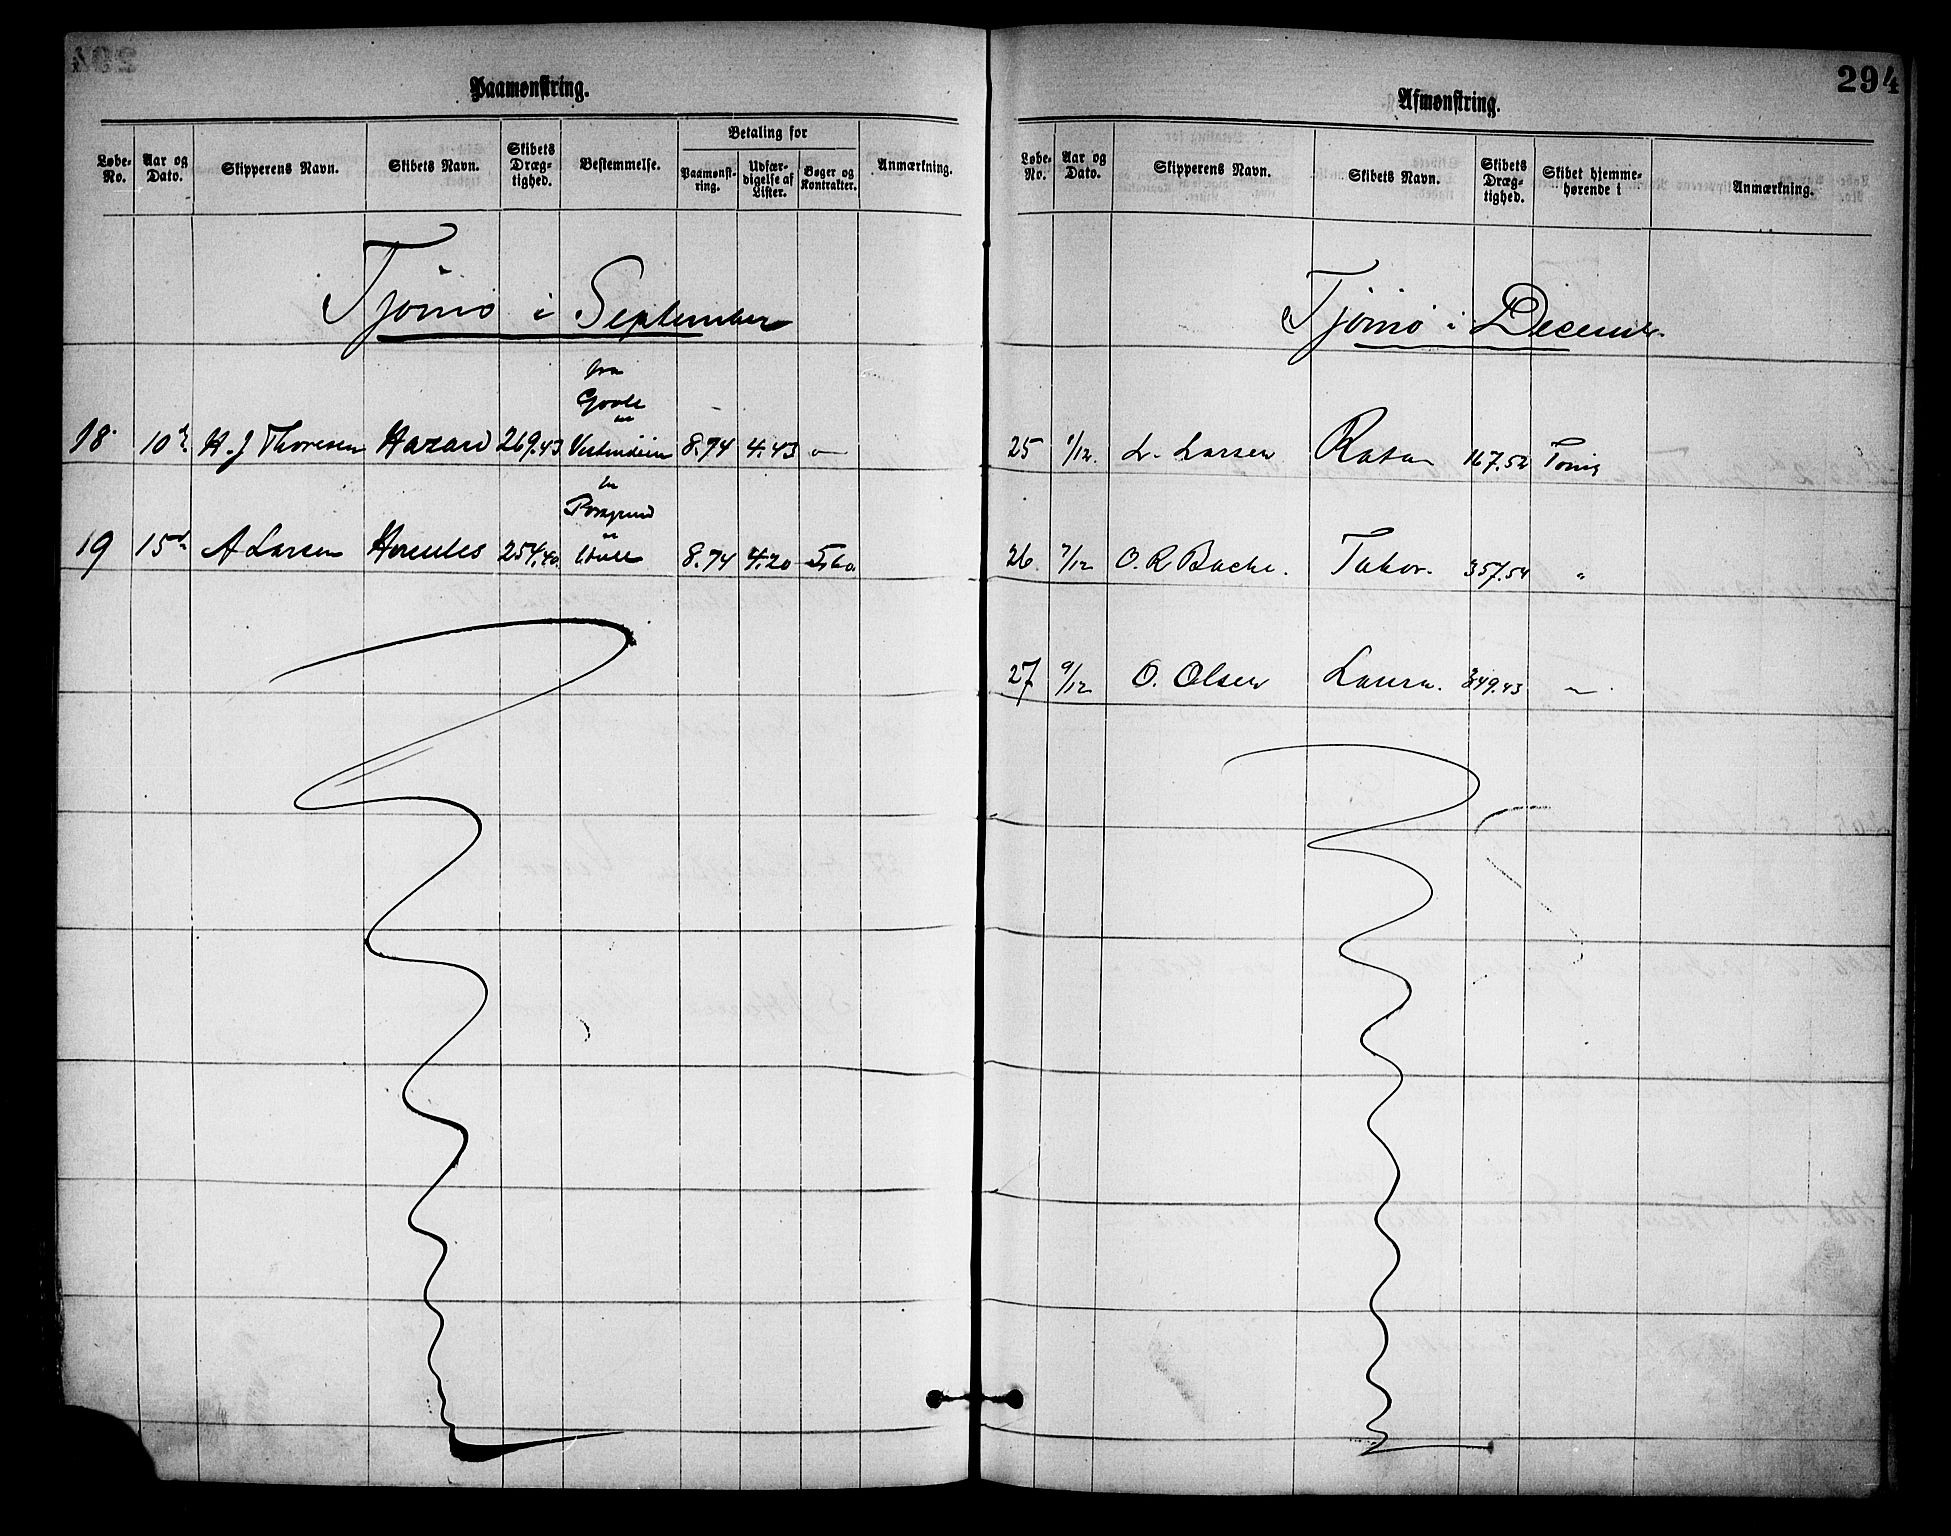 Paamønstring.
Løbe-No. Aar og Dato. Skipperens Navn. Skibets Navn. Skibets Dræg-tighed. Bestemmelse. Betaling for Paamønst-ring. Udfær-digelse af Lister. Bøger og Kontrakter. Anmærkning.
Tjømø i September
fra
Goole
18 10 H. J Thoresen Hazard 269.43 Vestindien 8.74 4.43 "
fra
Porsgrund
19 15 A Larsen Hercules 254.40 8.74 4.20 5,60
294
Afmønstring.
Løbe-No. Aar og Dato. Skipperens Navn. Skibets Navn. Skibets Dræg-tighed. Skibet hjemme-hørende i Anmærkning.
Tjømø i Decembr.
25 1/12. L. Larsen Rota 167.52
26. 7/12 O. R Bache. Tabor. 357.54 "
27 9/12 O. Olsen Laura. 349.43 "